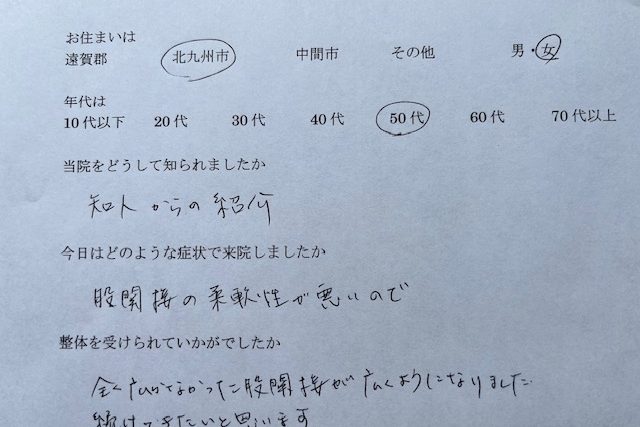 お住まいは
遠賀郡 北九州市 中間市 その他 男・女
年代は
10代以下 20代 30代 40代 50代 60代 70代以上
当院をどうして知られましたか
知人からの紹介
今日はどのような症状で来院しましたか
股関接の柔軟性が悪いので
整体を受けられていかがでしたか
全く広がらなかった股関接が広くようになりました
続けてきたいと思います